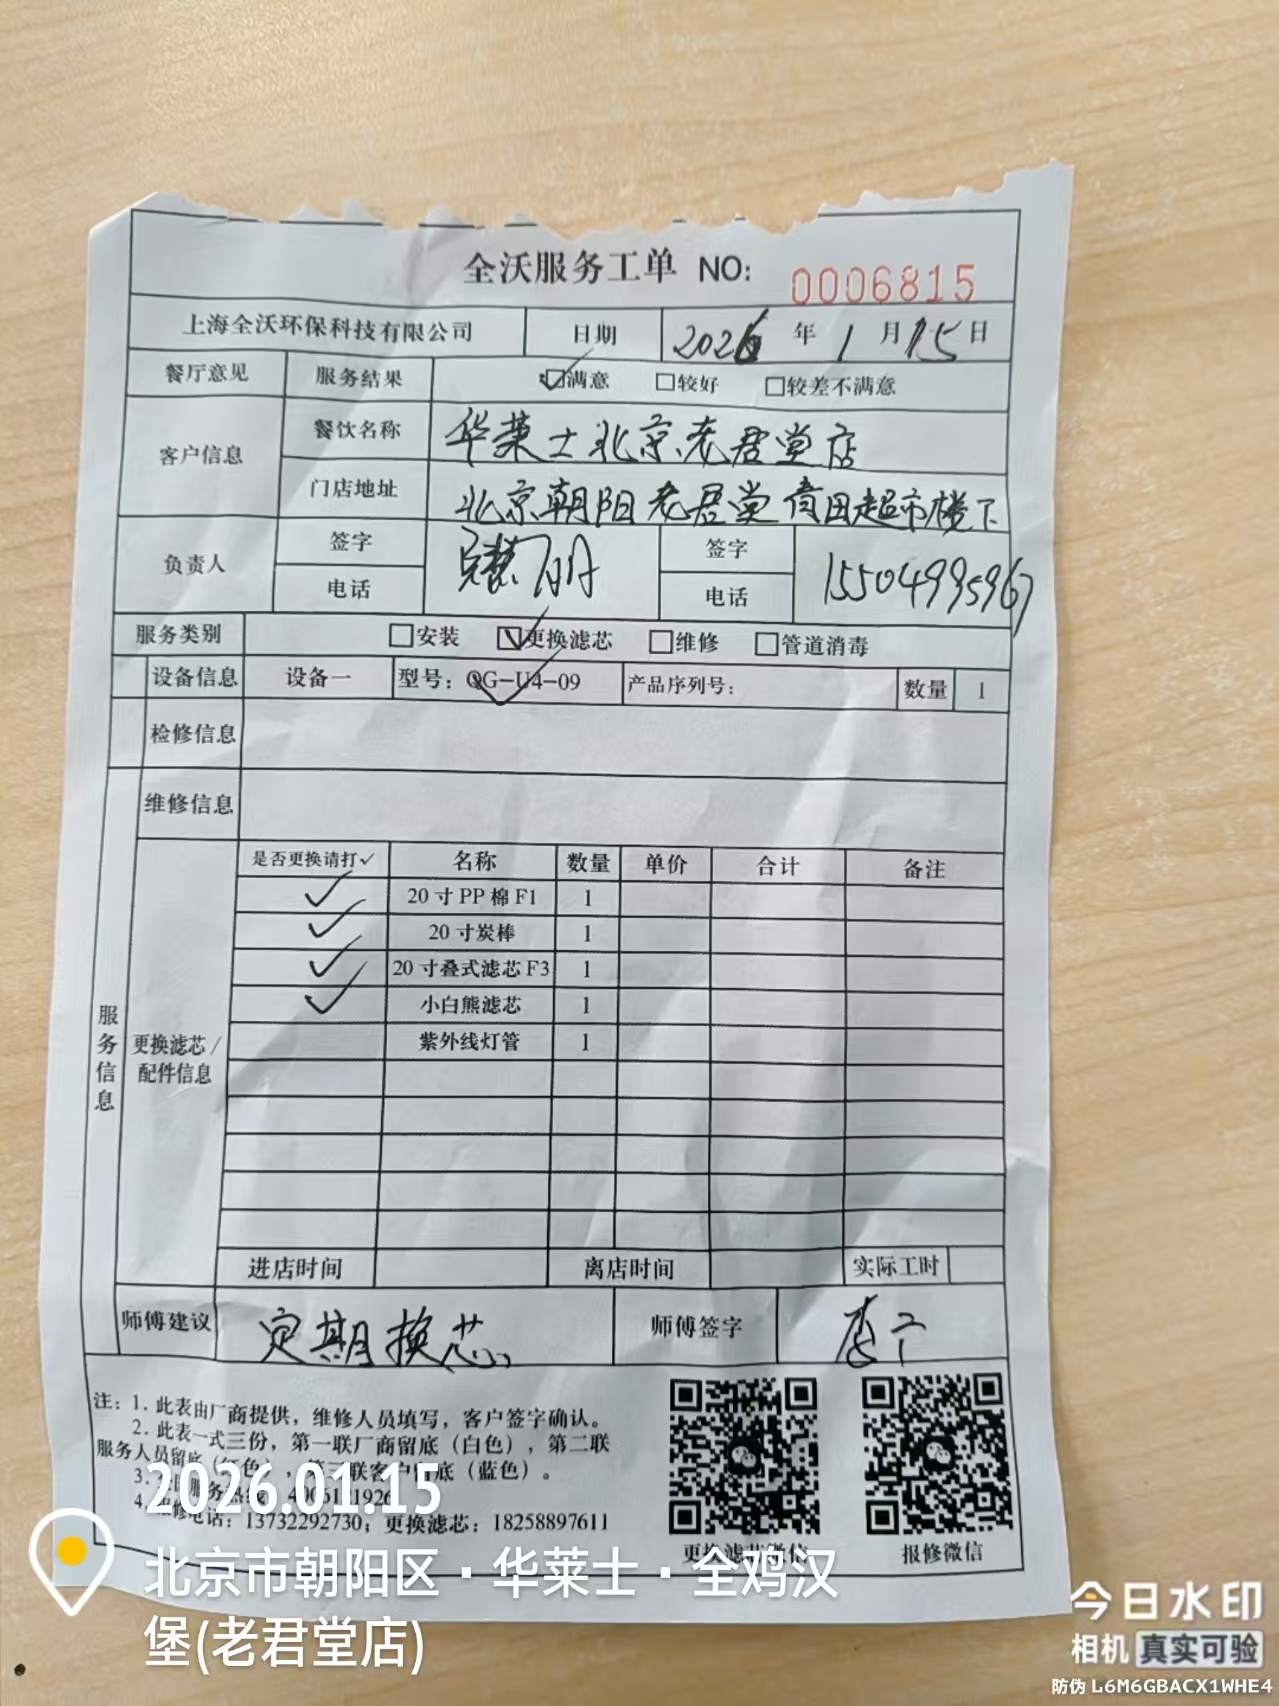 全沃服务工单 NO: 0006815
上海全沃环保科技有限公司 日期 2026年1月15日
餐厅意见 服务结果 ☑满意 □较好 □较差不满意
客户信息 餐饮名称 华莱士北京老君堂店
门店地址 北京朝阳老君堂 田超市楼下
负责人 签字 签字
电话 电话 15504995967
服务类别 □安装 ☑更换滤芯 □维修 □管道消毒
设备信息 设备一 型号：QG-U4-09 产品序列号： 数量 1
检修信息
维修信息
服务信息
更换滤芯/配件信息
是否更换请打✓ 名称 数量 单价 合计 备注
✓ 20寸PP棉F1 1
✓ 20寸炭棒 1
✓ 20寸叠式滤芯F3 1
✓ 小白熊滤芯 1
紫外线灯管 1
进店时间 离店时间 实际工时
师傅建议 定期换芯、 师傅签字
注：1. 此表由厂商提供，维修人员填写，客户签字确认。
2. 此表一式三份，第一联厂商留底（白色），第二联
服务人员留底（红色），第三联客户留底（蓝色）。
3.
4. 报修电话：13732292730；更换滤芯：18258897611
更换滤芯微信 报修微信
2026.01.15
北京市朝阳区·华莱士·全鸡汉
堡(老君堂店)
今日水印
相机 真实可验
防伪 L6M6GBACX1WHE4